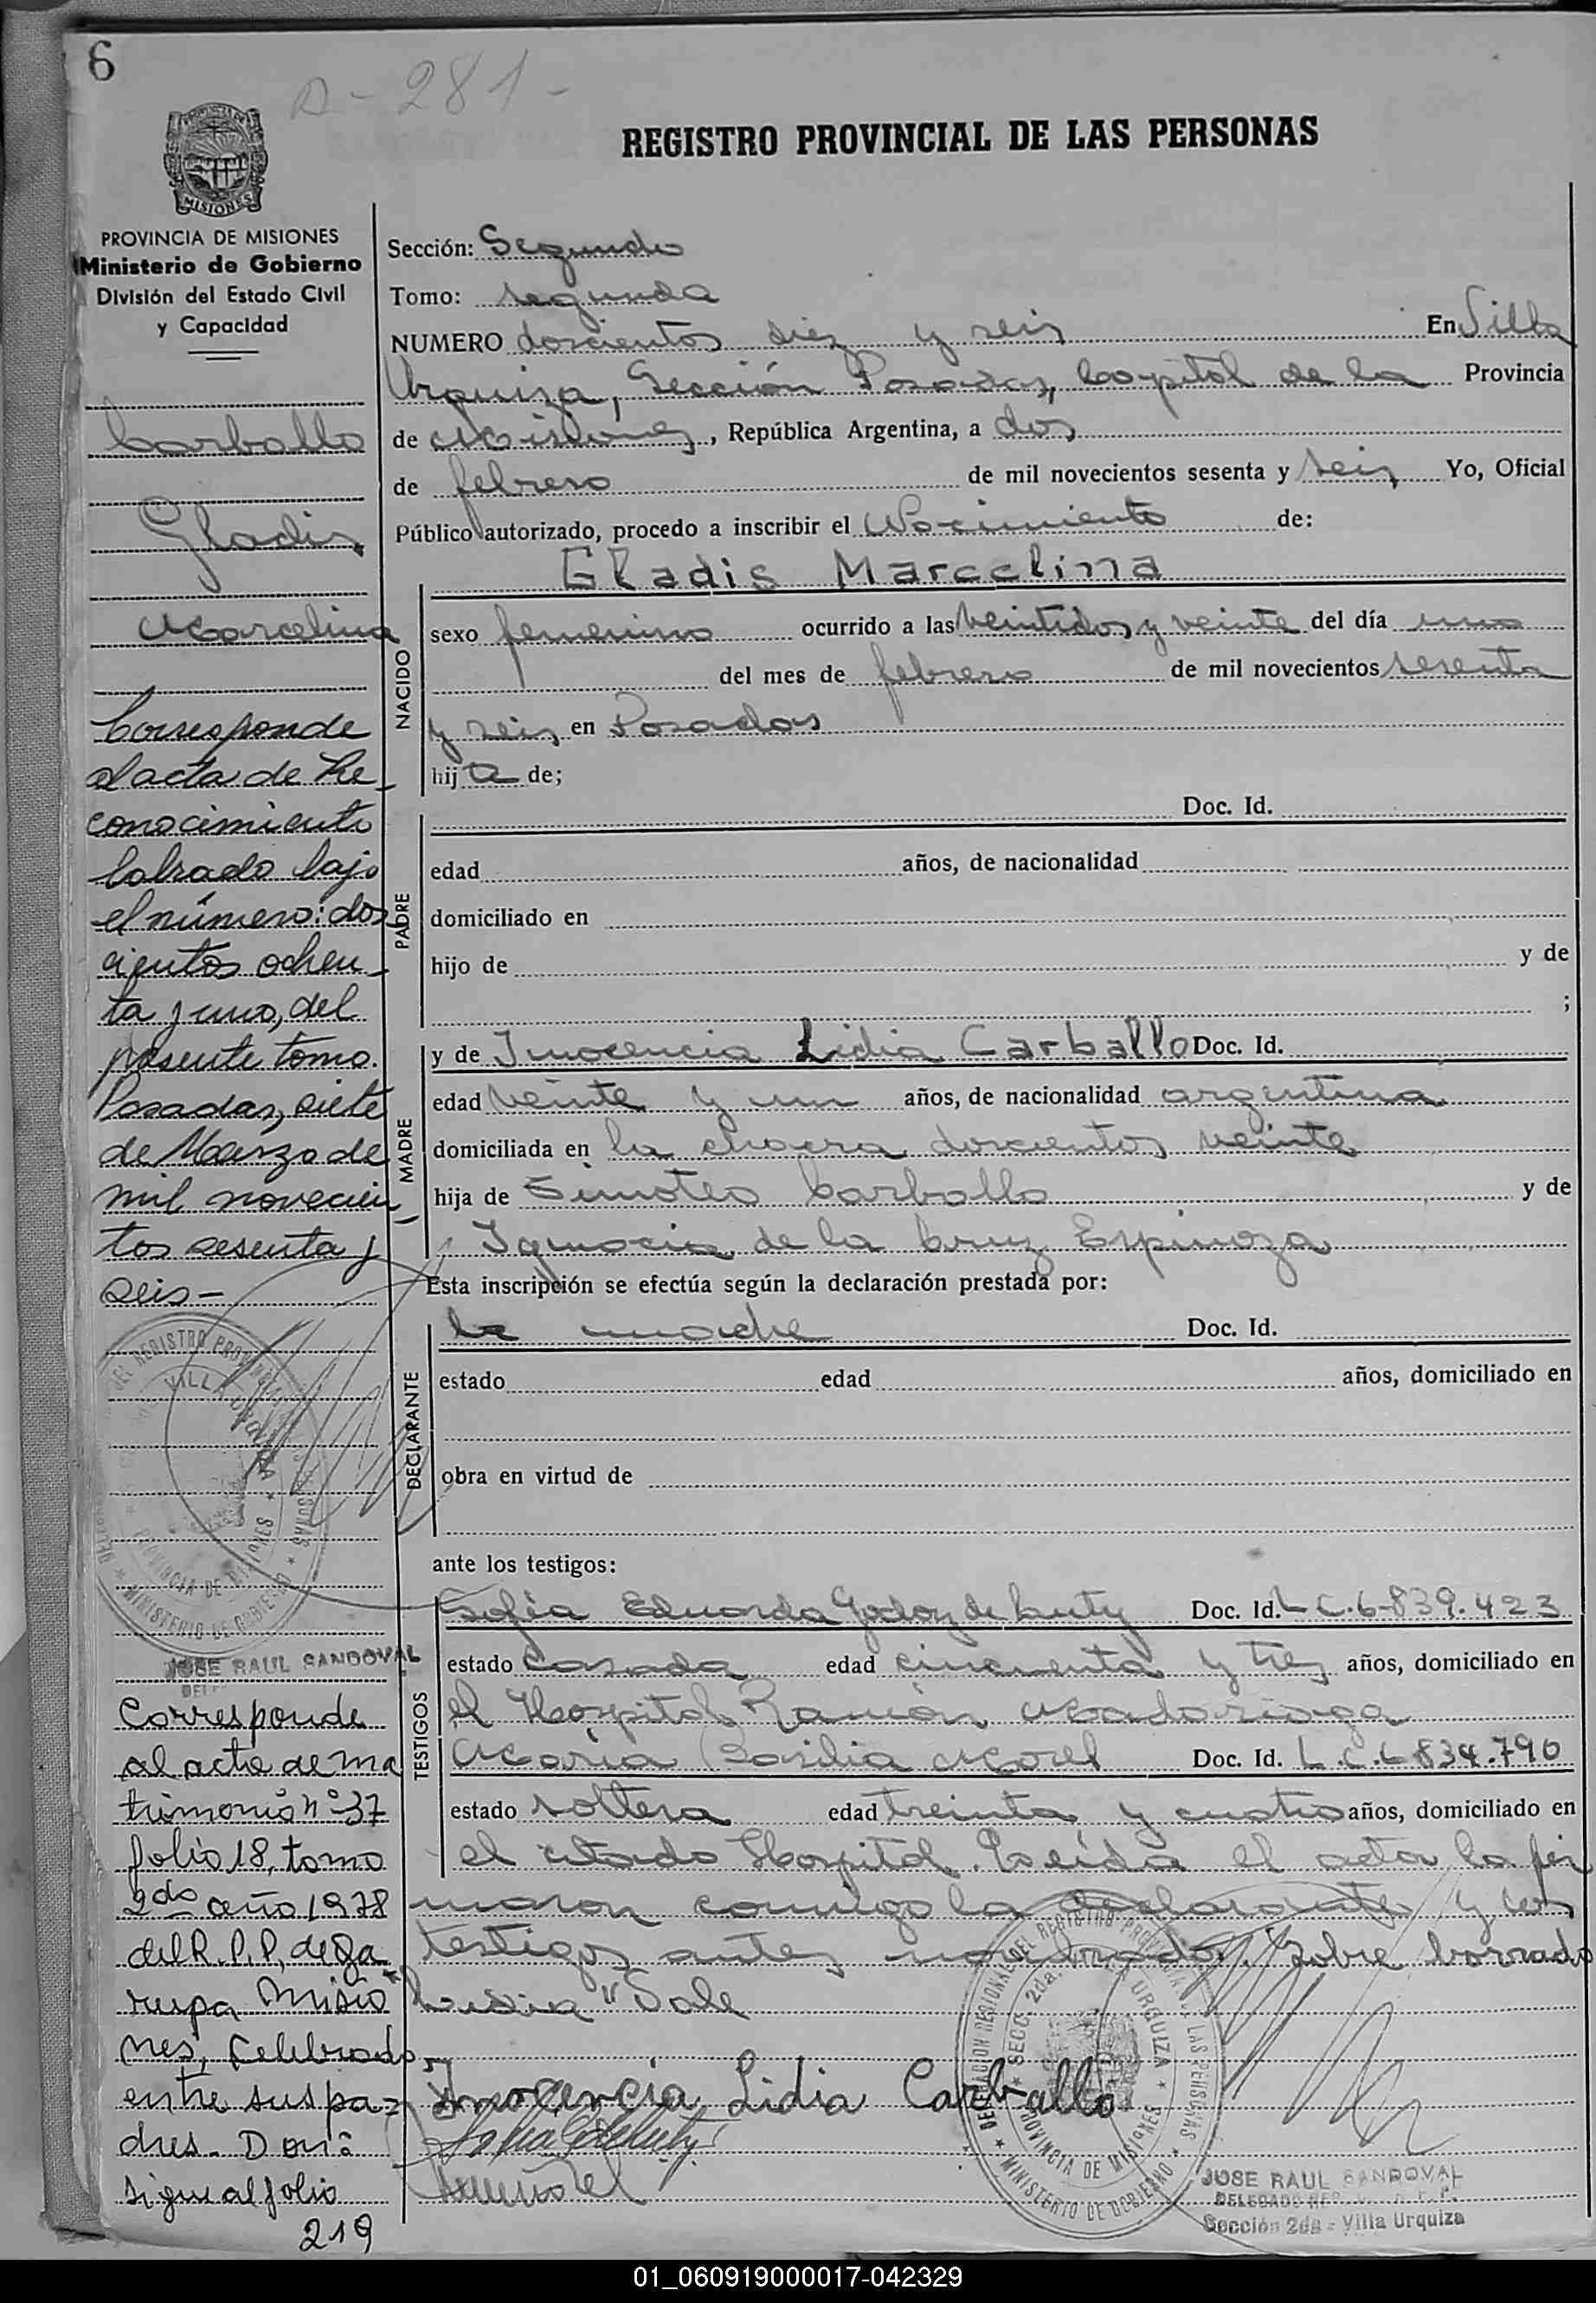 6
D - 281 -
REGISTRO PROVINCIAL DE LAS PERSONAS
MISIONES
PROVINCIA DE MISIONES
Ministerio de Gobierno
División del Estado Civil
y Capacidad
Carballo
Gladis
Marcelina
Corresponde
al acta de Re-
conocimiento
labrado bajo
el número: dos
cientos ochen-
ta y uno, del
presente tomo.
Posadas, siete
de Marzo de
mil novecien
tos sesenta y
seis -
JOSE RAUL SANDOVAL
Corresponde
al acta de ma
trimonio nº 37
folio 18, tomo
2do año 1978
del R.P.P. de Ga
rupa Misio
nes, Celebrado
entre sus pa-
dres. Don:
sigue al folio
219
Sección: Segunda
Tomo: segunda
NUMERO doscientos diez y seis En Villa
Urquiza, Sección Posadas, Capital de la Provincia
de Misiones, República Argentina, a dos
de febrero de mil novecientos sesenta y seis Yo, Oficial
Público autorizado, procedo a inscribir el Nacimiento de:
Gladis Marcelina
NACIDO
sexo femenino ocurrido a las veintidos y veinte del día uno
del mes de febrero de mil novecientos sesenta
y seis en Posadas
hija de;
PADRE
Doc. Id.
edad años, de nacionalidad
domiciliado en
hijo de y de
;
MADRE
y de Inocencia Lidia Carballo Doc. Id.
edad veinte y un años, de nacionalidad argentina
domiciliada en la chacra doscientos veinte
hija de Simoteo Carballo y de
Ignacia de la Cruz Espinoza
Esta inscripción se efectúa según la declaración prestada por:
DECLARANTE
la madre Doc. Id.
estado edad años, domiciliado en
obra en virtud de
ante los testigos:
TESTIGOS
Sofía Eduarda Godoy de Doc. Id. L C. 6-839.423
estado casada edad cincuenta y tres años, domiciliado en
el Hospital Ramón Madariaga
María Basilia Morel Doc. Id. L.C. 6834.790
estado soltera edad treinta y cuatro años, domiciliado en
el citado Hospital. Leída el acta la fir
maron conmigo la declarante y los
testigos antes nombrados. Sobre borrado
"Lidia" Vale
Inocencia Lidia Carballo
DELEGACION REGIONAL DEL REGISTRO PROVINCIAL DE LAS PERSONAS
SECC. 2da. VILLA URQUIZA
PROVINCIA DE MISIONES
MINISTERIO DE GOBIERNO
JOSE RAUL SANDOVAL
Sección 2da - Villa Urquiza
01_060919000017-042329